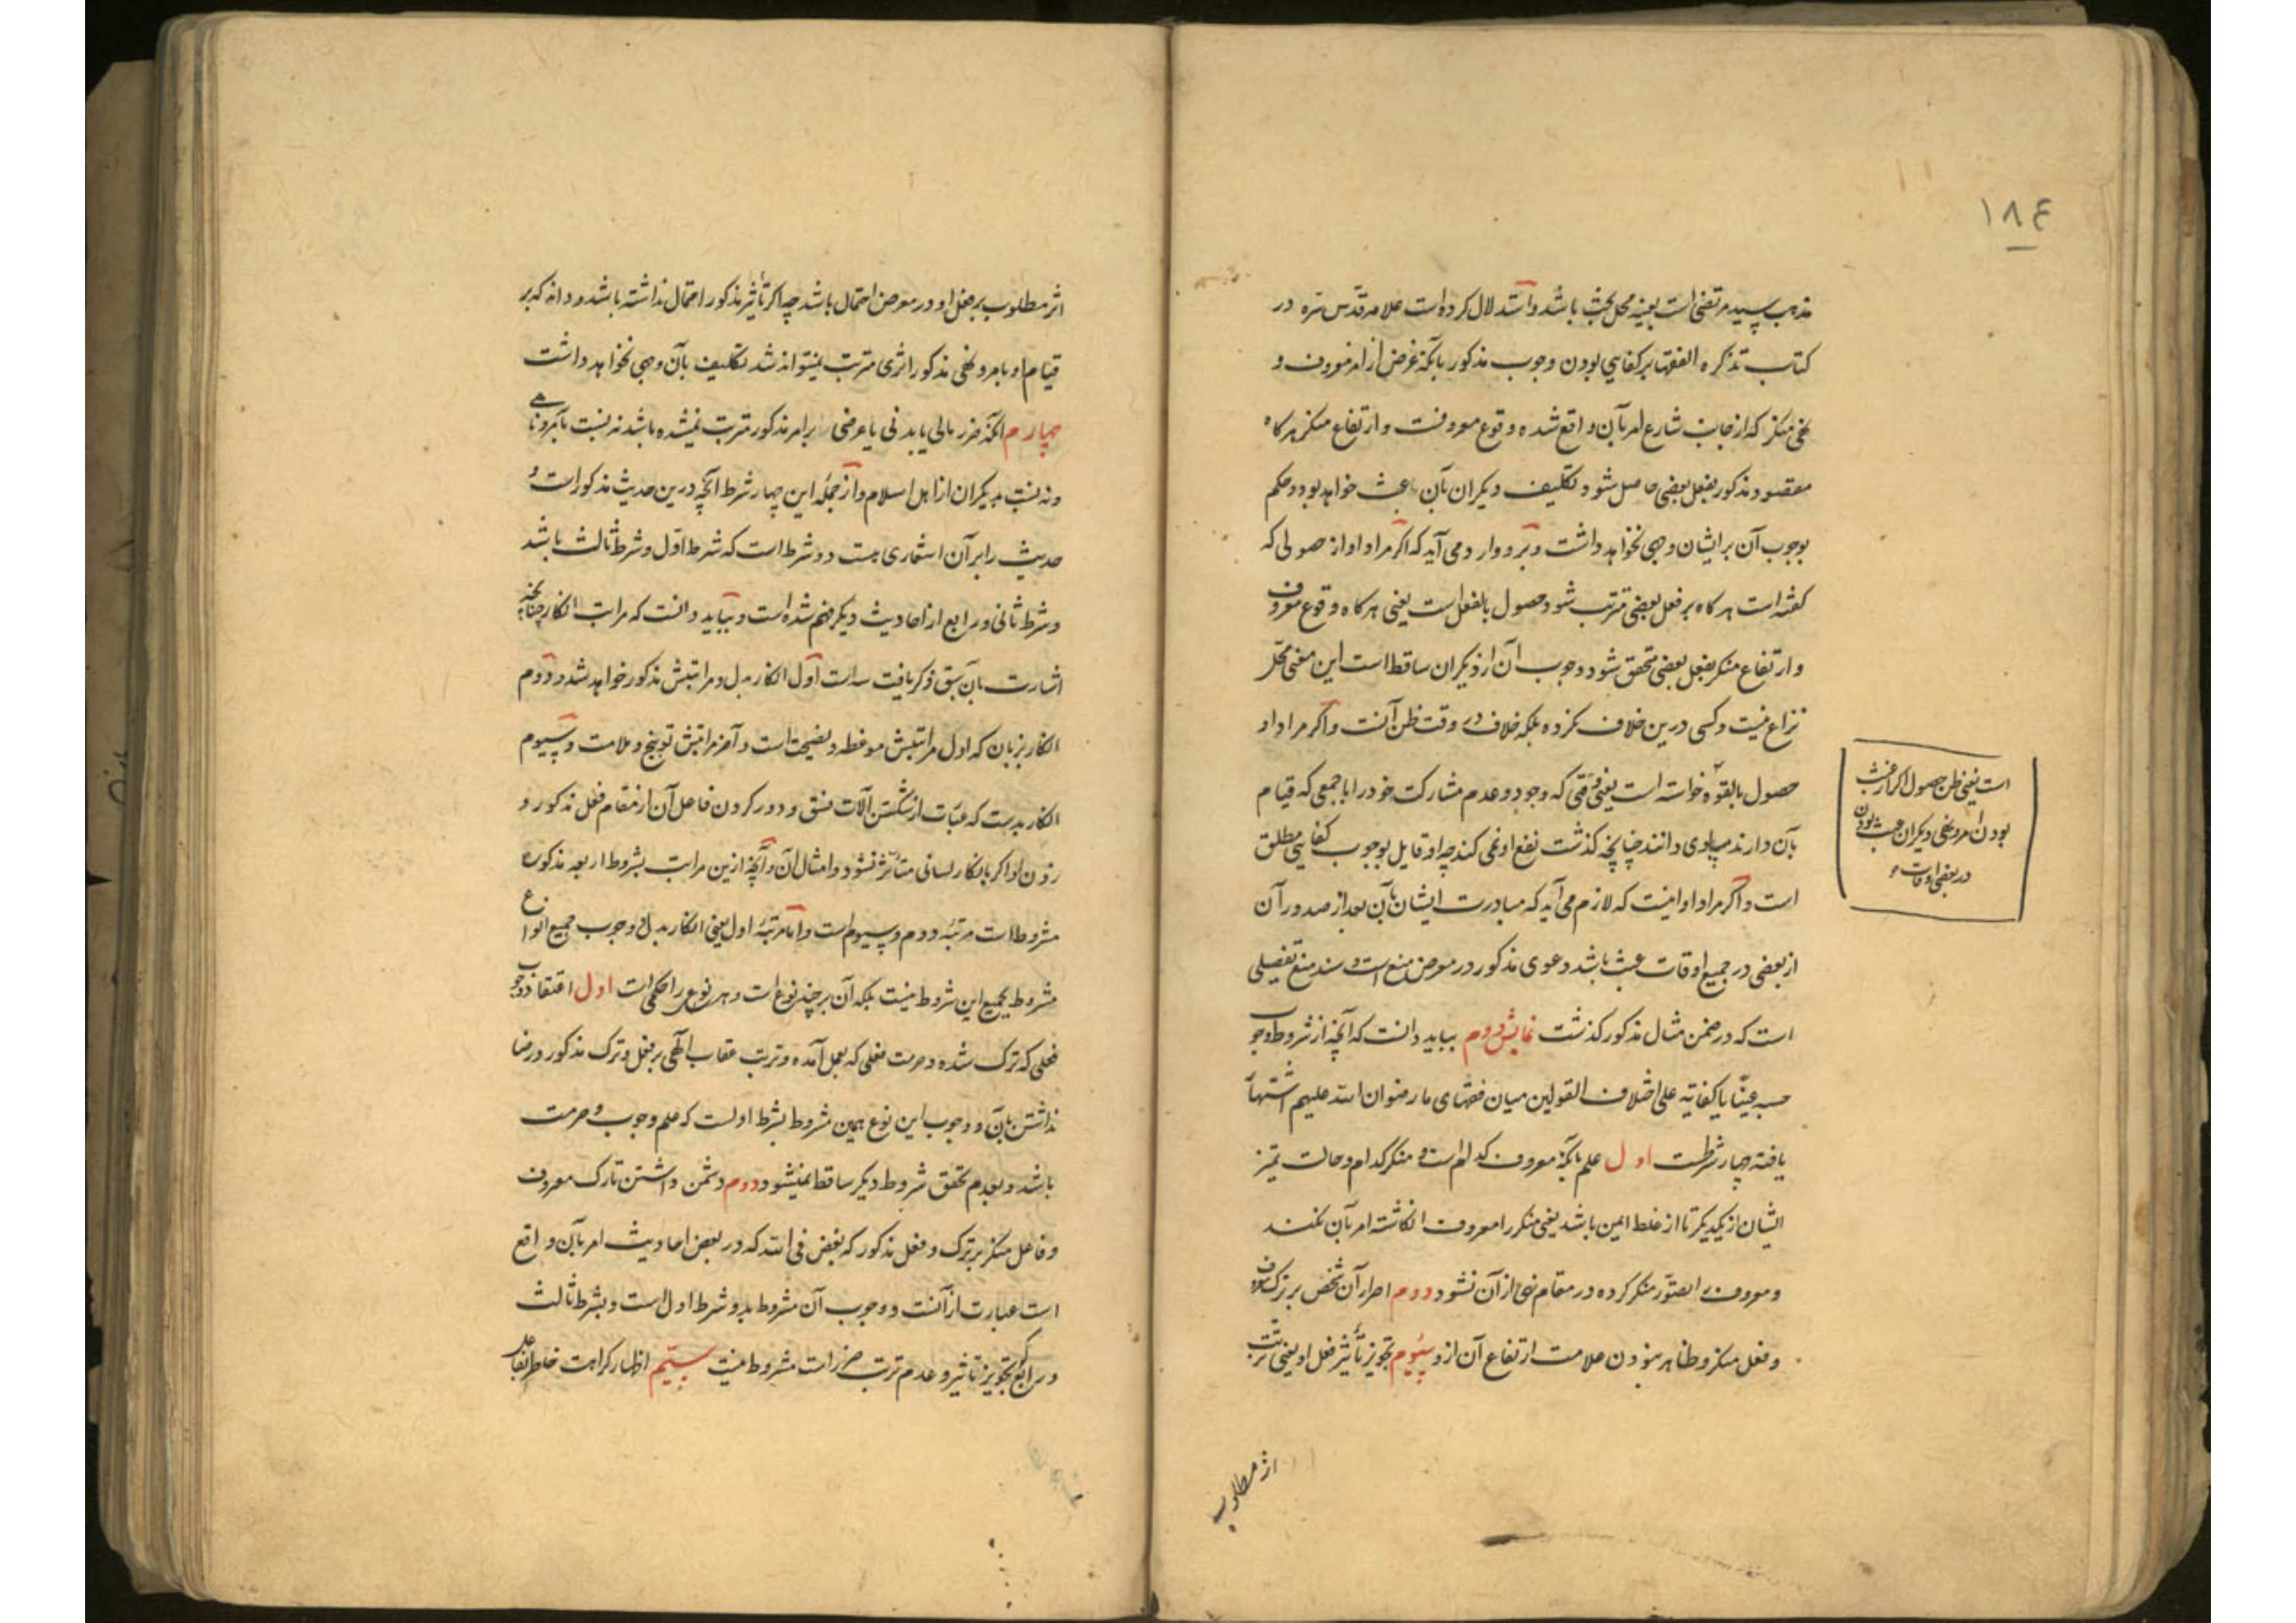 ۱۸۴
مذهب سید مرتضی است بعینه محل بحث باشد و استدلال کرده است علامه قدّس سرّه در
کتاب تذکره الفقها بر کفایی بودن وجوب مذکور بآنکه غرض از امر معروف و
نهی منکر که از جانب شارع امر بآن واقع شده وقوع معروفست و ارتفاع منکر هر کاه
مقصود مذکور بفعل بعضی حاصل شود تکلیف دیکران بآن عبث خواهد بود و حکم
بوجوب آن بر ایشان وجهی نخواهد داشت و برو وارد می آید که اکر مراد او از حصولی که
کفته است هر کاه بر فعل بعضی مترتب شود حصول بالفعل است یعنی هر کاه وقوع معروف
و ارتفاع منکر بفعل بعضی متحقق شود وجوب آن از دیکران ساقط است این معنی محلّ
نزاع نیست و کسی درین خلاف نکرده بلکه خلاف در وقت ظن آنست و اکر مراد او
حصول بالقوّه خواسته است یعنی وقتی که وجود و عدم مشارکت خود را با جمعی که قیام
بآن دارند مساوی دانند چنانچه کذشت نفع او نمی کند چه او قایل بوجوب کفایی مطلق
است و اکر مراد او اینست که لازم می آید که مبادرت ایشان بآن بعد از صدور آن
از بعضی در جمیع اوقات عبث باشد دعوی مذکور در معرض منع است و سند منع تفصیلی
است که در ضمن مثال مذکور کذشت نمایش دوم بباید دانست که آنچه از شروط وجوب
حسبه عینًا یا کفایة علی اختلاف القولین میان فقهای ما رضوان الله علیهم اشتهار
یافته چهار شرطست اول علم بآنکه معروف کدام است و منکر کدام و حالت تمیز
ایشان از یکدیکر تا از غلط ایمن باشد یعنی منکر را معروف انکاشته امر بآن نکنند
و معروف را تصوّر منکر کرده در مقام نهی از آن نشود دوم اصرار آن شخص بر ترک معروف
و فعل منکر و ظاهر نبودن علامت ارتفاع آن ازو سیوم تجویز تأثیر فعل او یعنی ترتّب
است یعنی ظن حصول اکر از عبث
بودن امر و نهی دیکران عبث بودن
در بعضی اوقات
اثر مطلوب
اثر مطلوب بر فعل او در معرض احتمال باشد چه اکر تأثیر مذکور احتمال نداشته باشد و داند که بر
قیام او بامر و نهی مذکور اثری مترتب نمیتواند شد تکلیف بآن وجهی نخواهد داشت
چهارم آنکه ضرر مالی یا بدنی یا عرضی بر امر مذکور مترتب نمیشده باشد نه نسبت بآمر و ناهی
و نه نسبت بدیکران از اهل اسلام و از جملهٔ این چهار شرط آنچه درین حدیث مذکور است و
حدیث را بر آن اشعاری هست دو شرط است که شرط اوّل و شرط ثالث باشد
و شرط ثانی و رابع از احادیث دیکر فهم شده است و بباید دانست که مراتب انکار چنانچه
اشارت بآن سبق ذکر یافت سه است اول انکار بدل و مراتبش مذکور خواهد شد دوم
انکار بزبان که اول مراتبش موعظه و نصیحت است و آخر مراتبش توبیخ و ملامت و سیوم
انکار بدست که عبارت از شکستن آلات فسق و دور کردن فاعل آن از مقام فعل مذکور و
زدن او اکر بانکار لسانی متأثر نشود و امثال آن و آنچه ازین مراتب بشروط اربعه مذکوره
مشروط است مرتبهٔ دوم و سیوم است و اما مرتبهٔ اول یعنی انکار بدل وجوب جمیع انواع
مشروط بجمیع این شروط نیست بلکه آن بر چند نوع است و هر نوع را حکمی است اول اعتقاد وجوب
فعلی که ترک شده و حرمت فعلی که بعمل آمده و ترتب عقاب الهی بر فعل و ترک مذکور و رضا
نداشتن بآن و وجوب این نوع همین مشروط بشرط اولست که علم وجوب و حرمت
باشد و بعدم تحقق شروط دیکر ساقط نمیشود دوم دشمن داشتن تارک معروف
و فاعل منکر بر ترک و فعل مذکور که بغض فی الله که در بعض احادیث امر بآن واقع
است عبارت از آنست و وجوب آن مشروط بدو شرط اول است و بشرط ثالث
و رابع که تجویز تأثیر و عدم ترتب ضرر است مشروط نیست سیّم اظهار کراهت خاطر